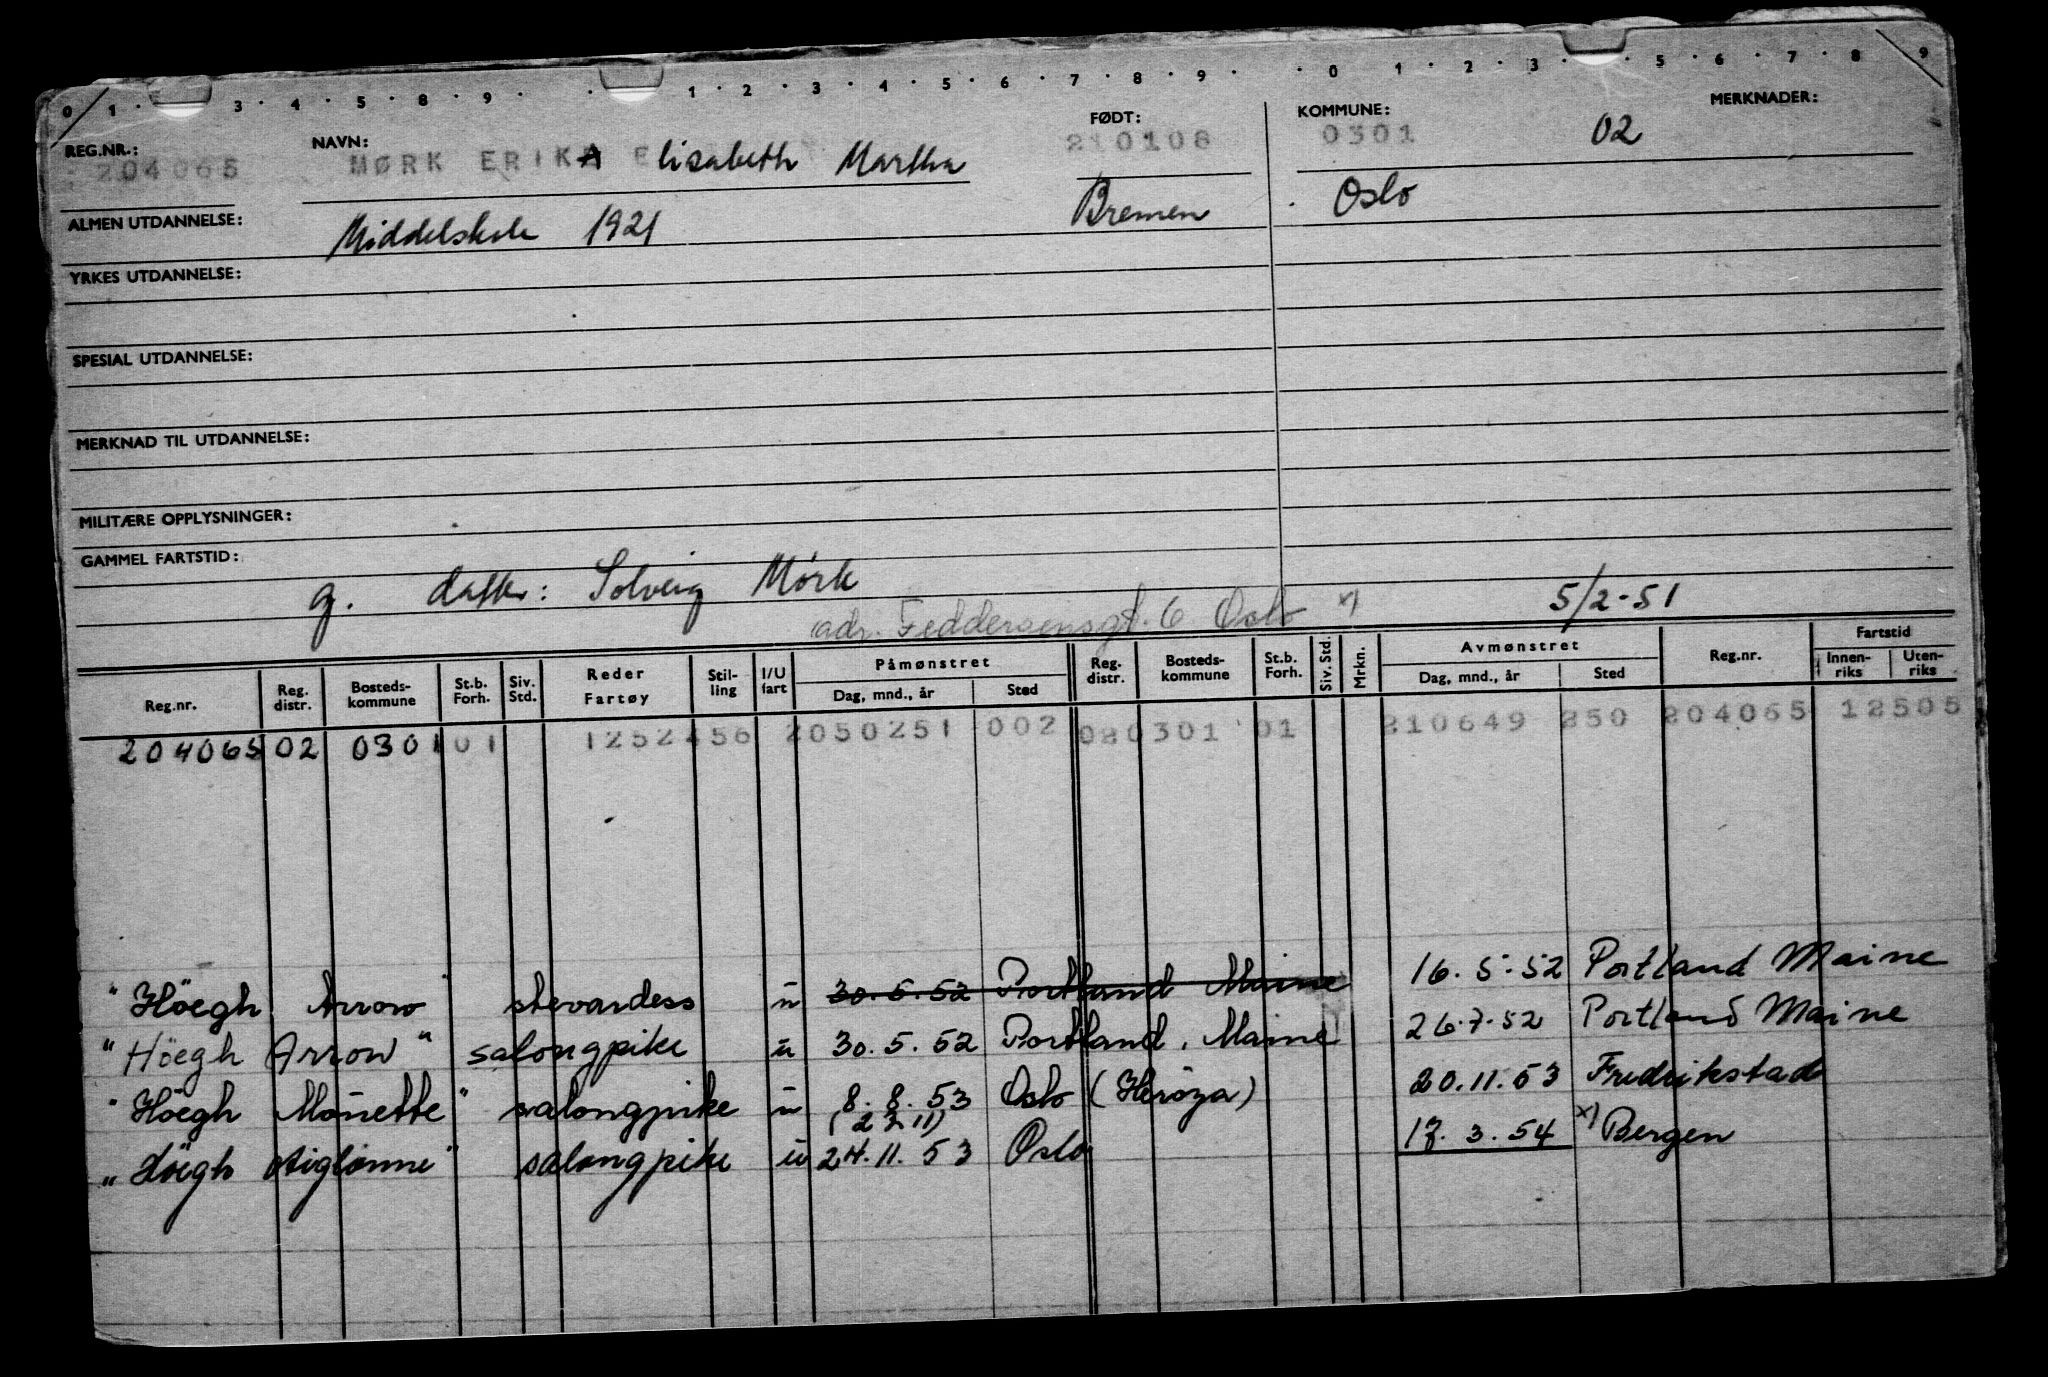 0 1 · 3 · 4 · 5 · 8 · 9 · · 1 · 2 · 3 · 4 · 5 · 6 · 7 · 8 · 9 · · 0 1 · 2 · 3 · 5 · 6 · 7 · 8 9
REG.NR.: NAVN: FØDT: KOMMUNE: MERKNADER:
204065 MØRK ERIKA Elisabeth Martha 210108 0301 02
ALMEN UTDANNELSE: Middelskole 1921 Bremen Oslo
YRKES UTDANNELSE:
SPESIAL UTDANNELSE:
MERKNAD TIL UTDANNELSE:
MILITÆRE OPPLYSNINGER:
GAMMEL FARTSTID:
g. datter: Solveig Mørk 5/2-51
adr. Feddersensgt. 6 Oslo x)
Reg.nr. Reg. distr. Bosteds-kommune St.b. Forh. Siv. Std. Reder Fartøy Stil-ling I/U fart Påmønstret Dag, mnd., år Sted Reg. distr. Bosteds-kommune St.b. Forh. Siv. Std. Mrkn. Avmønstret Dag, mnd., år Sted Reg.nr. Fartstid Innen-riks Uten-riks
204065 02 0301 01 1252456 2050251 002 020301 01 210649 250 204065 12505
"Höegh Arrow" stevardess u 30.5.52 Portland Maine 16.5.52 Portland Maine
"Höegh Arrow" salongpike u 30.5.52 Portland, Maine 26.7.52 Portland Maine
"Höegh Monette" salongpike u 8.8.53 Oslo (Heröya) 20.11.53 Fredrikstad
(23.11)
"Höegh Aiglonne" salongpike u 24.11.53 Oslo 17.3.54 x) Bergen